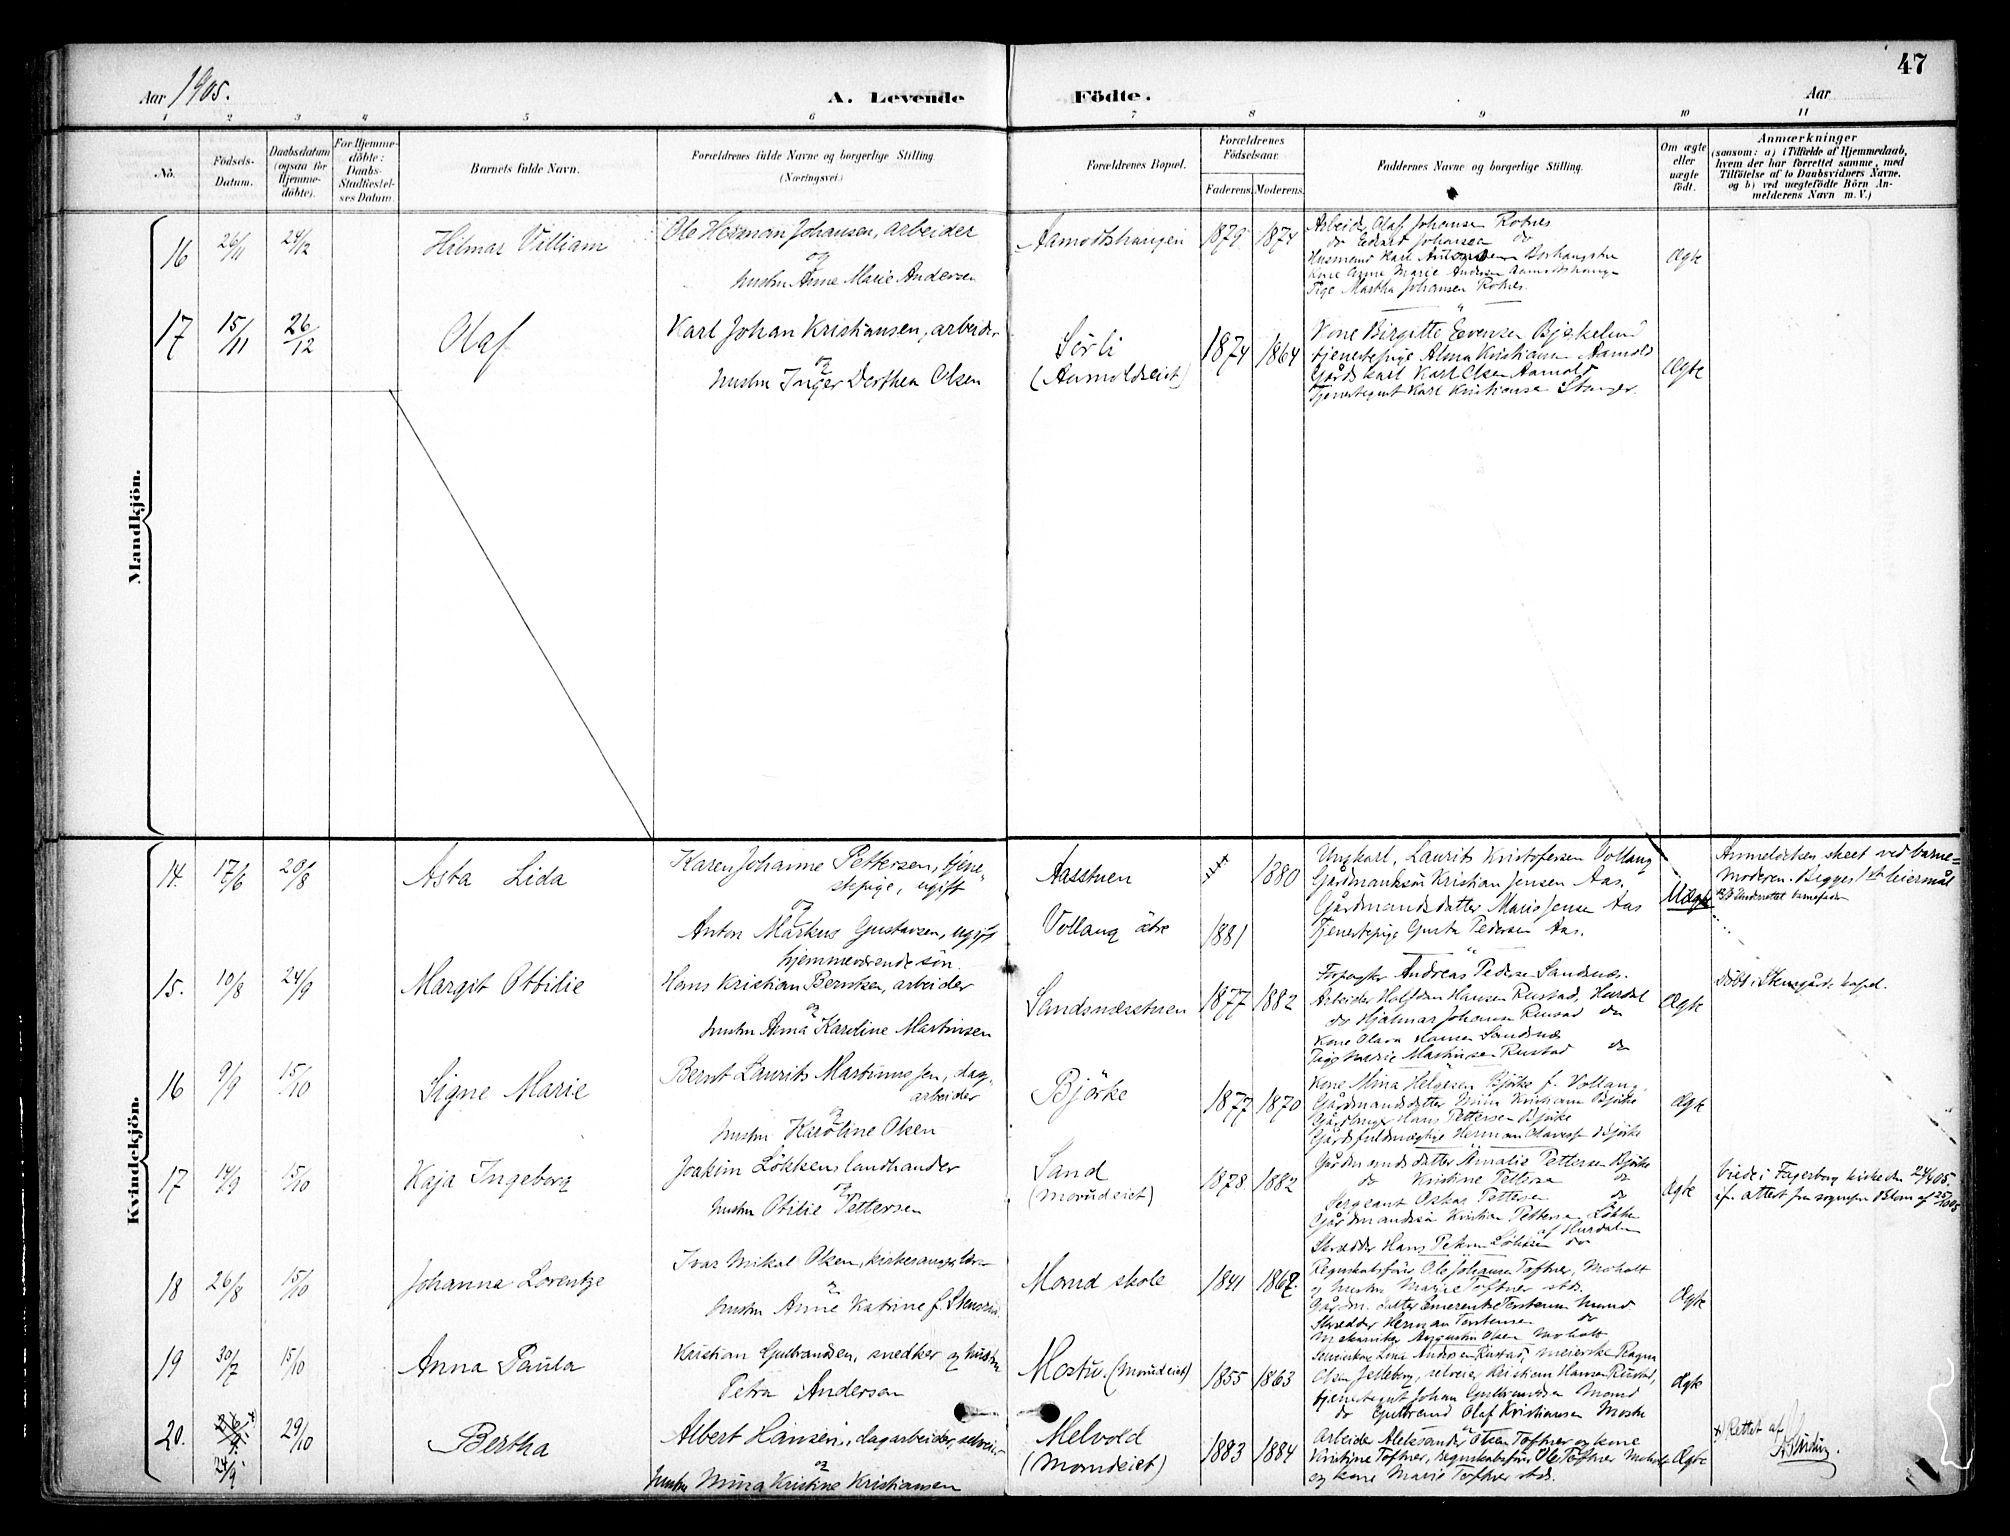 47
Aar 1905.
A. Levende Födte.
Aar
1 2 3 4 5 6 7 8 9 10 11
No.
Födsels-Datum.
Daabsdatum (ogsaa for Hjemmedöbte).
For Hjemmedöbte: Daabs-Stadfæstelses Datum.
Barnets fulde Navn.
Forældrenes fulde Navne og borgerlige Stilling.
(Næringsvei.)
Forældrenes Bopæl.
Forældrenes Födselsaar.
Faderens. Moderens.
Faddernes Navne og borgerlige Stilling.
Om ægte eller uægte födt.
Anmærkninger
(saasom: a) i Tilfælde af Hjemmedaab,
hvem der har forrettet samme, med
Tilföielse af to Daabsvidners Navne,
og b) ved uægtefödte Börn Anmelderens Navn m. V.)
Mandkjön.
16 26/11 24/12 Hilmar Villiam
Ole Herman Johansen, arbeider
og
hustru Anne Marie Andersen
Aamodtshaugen 1879 1874
Arbeider Olaf Johansen Rotnes
do Edvard Johansen do
Husmand Karl
Kone Anne Marie Andersen Aamodtshaugen
Pige Martha Johansen Rotnes.
Ægte
17 15/11 26/12 Olaf
Karl Johan Kristiansen, arbeider
og
hustru Inger Dorthea Olsen
Sørli
(Aamoldseiet)
1874 1864
Kone Birgitte Evensen Bjerkelund
tjenestepige Alma Kristiansen Aamold
Gårdskarl Karl Olsen Aamold
Tjenestegut Karl Kristiansen Stanger.
Ægte
Kvindekjön.
14. 17/6 20/8 Asta Lida
Karen Johanne Pettersen, tjenestepige, ugift
og
Anton Markus Gustavsen, ugift
hjemmeværende søn
Aasstuen 1880
Vollaug øtre 1881
Ungkarl, Laurits Kristofersen Vollaug
Gårdmandssøn Kristian Jensen Aas.
Gårdmandsdatter Marie Jensen Aas
Tjenestepige Gusta Pedersen Aas.
Uægte
Anmeldelsen skeet ved barnemoderen. Begges 1ste leiermål
15. 10/8 24/9 Margit Otbilie
Hans Kristian Berntsen, arbeider
og
hustru Anna Karoline Martinsen
Sandsnæsstuen 1877 1882
Forpagter Andreas Pedersen Sandsnæs.
Arbeider Halfdan Hansen Rustad, Hurdal
do Hjalmar Johansen Rustad do
Kone Olava Hansen Sandsnæs
Pige Marie Martinsen Rustad do
Ægte
Döbt i Stensgårds kapel.
16 9/9 15/10 Signe Marie
Bernt Laurits Martinussen, dagarbeider
og
hustru Karoline Olsen
Björke 1877 1870
Kone Mina Helgesen Björke f. Vollaug.
Gårdmandsdatter Mina Kristiansen Björke
Gårdbruger Hans Pettersen Björke
Gårdsfuldmægtig Herman Olavesen Björke
Ægte
17 14/9 15/10 Kaja Ingeborg
Joakim Løkken landhandler
og
hustru Otilie Pettersen
Sand
(Morudeiet)
1878 1882
Gårdmandsdatter Amalie Pettersen Björke
do Kristine Pettersen do
Sergeant Oskar Pettersen do
Gårdmandssøn Kristian Pettersen Løkken af Hurdalen
Skrædder Hans Petersen Løkken do
Ægte
Viede i Fagerborg kirke den 24/4 05.
18 26/8 15/10 Johanna Lorentze
Ivar Mikal Olsen, kirkesanger, lærer
og
hustru Anne Katrine f. Stensrud.
Morud skole 1841 1862.
Regnskabsfører Ole Johansen Toftner, Moholt
og hustru Marie Toftner stds.
Gårdm. datter Emerentse Torstensen Morud
Skrædder Herman Torstensen do
Mekaniker Augustin Olsen Moholt
Ægte
19 30/7 15/10 Anna Paula
Kristian Gulbrandsen, snedker og hustru
Petra Anderson
Mostu. (Morudeiet) 1855 1863
Lina Andersen Rustad, meierske Ragna
Olsen Jelleberg, selveier Kristian Hansen Rustad,
tjenestegut Johan Gulbrandsen Morud
do Gulbrand Olaf Kristiansen Mostu
Ægte
20. 24/9 29/10 Bertha
Albert Hansen, dagarbeider, selveier
og
hustru Mina Kristine Kristiansen
Melvold
(Morudeiet)
1883 1884
Arbeider Aleksander Olsen Toftner og kone
Kristine Toftner, regnskabsfører Ole Toftner Moholt
og kone Marie Toftner stds.
Ægte
x) Rettet af